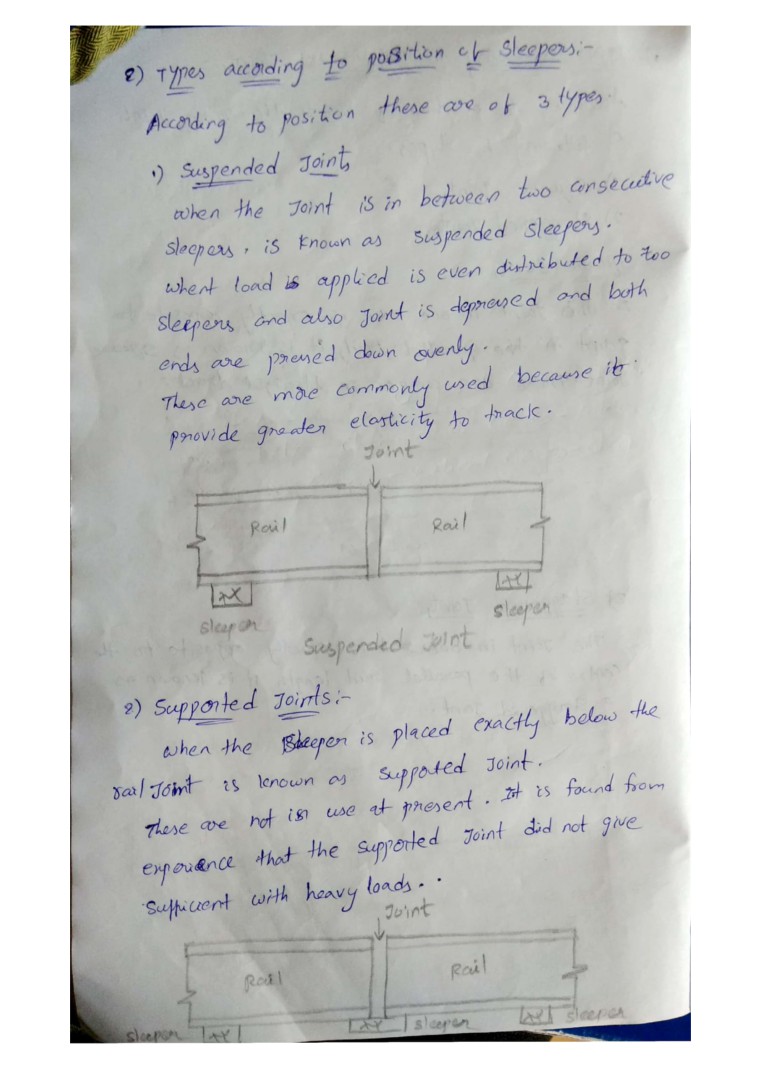 2) Types according to position of Sleepers:-
According to position these are of 3 types.
1) Suspended Joints
when the Joint is in between two consecutive
sleepers, is known as suspended sleepers.
when load is applied is even distributed to too
sleepers and also Joint is depressed and both
ends are pressed down evenly.
These are more commonly used because it
provide greater elasticity to track.
Joint
Rail Rail
sleeper sleeper
Suspended Joint
2) Supported Joints:-
when the Sleeper is placed exactly below the
rail Joint is known as supported Joint.
These are not in use at present. It is found from
experience that the supported Joint did not give
Sufficient with heavy loads..
Joint
Rail Rail
sleeper sleeper sleeper